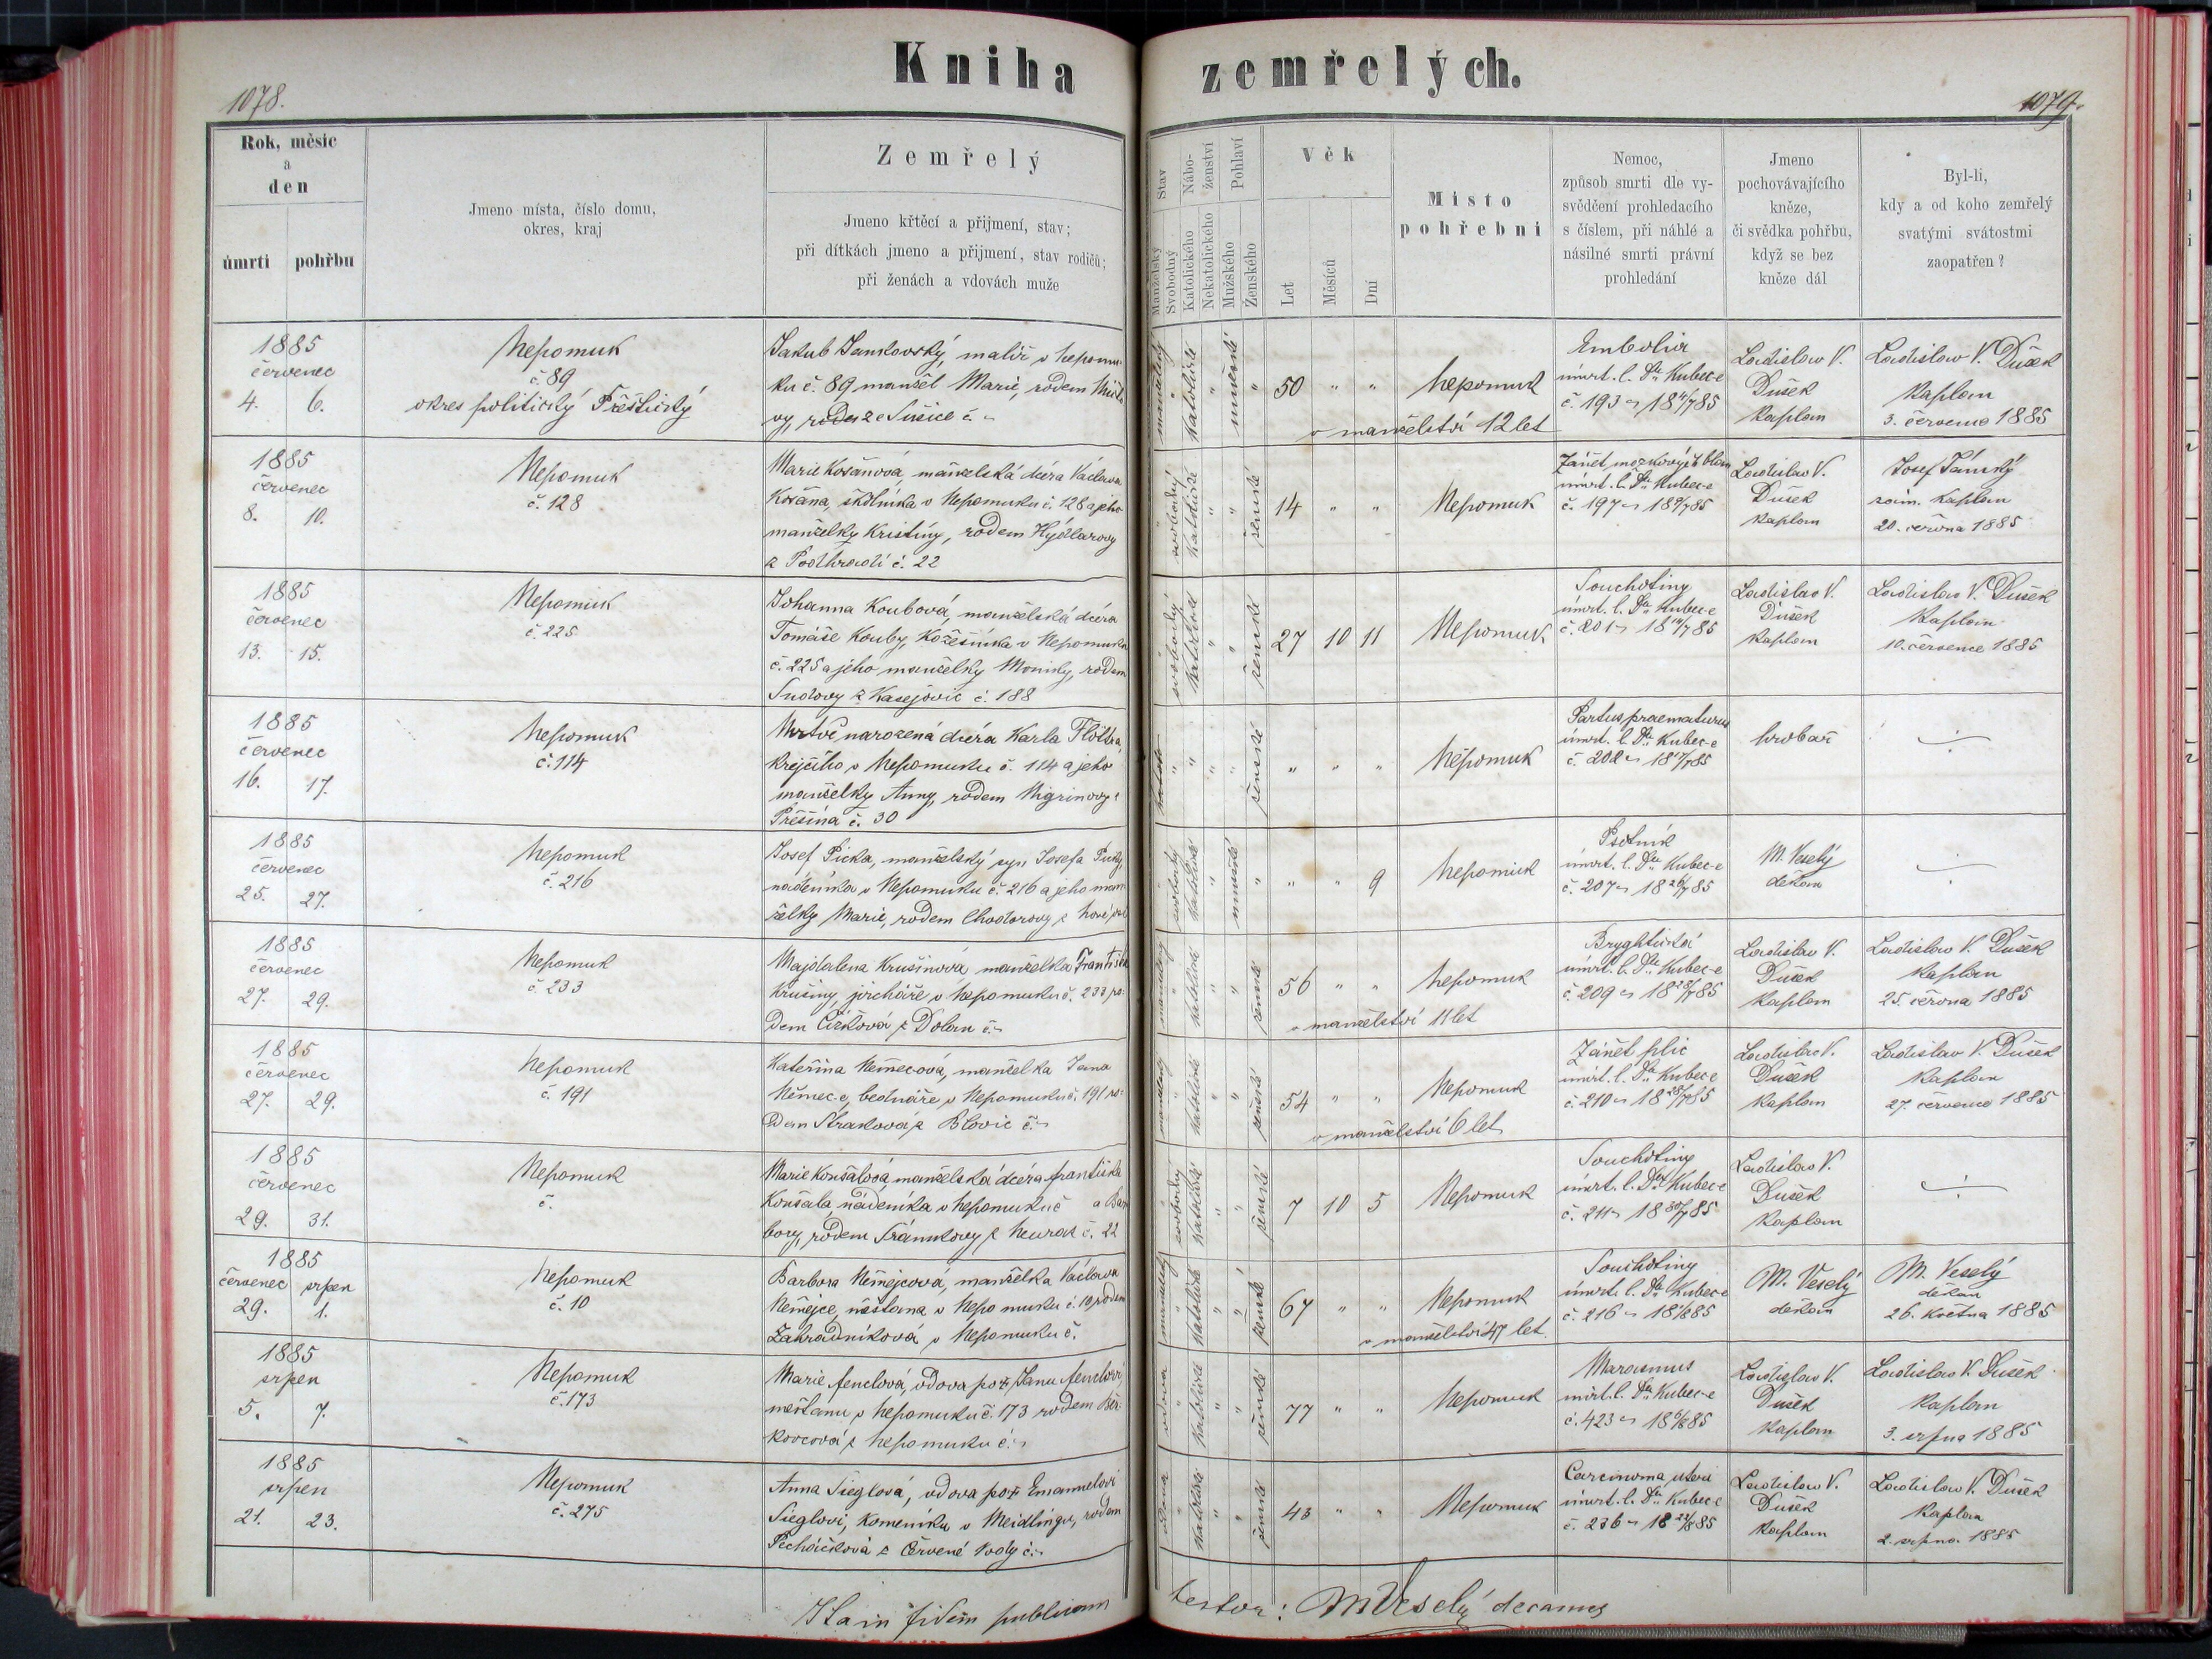 Kniha zemřelých.
1078.
1079.
Rok, měsíc
a
den
úmrtí pohřbu
Jmeno místa, číslo domu,
okres, kraj
Zemřelý
Jmeno křtěcí a přijmení, stav;
při dítkách jmeno a přijmení, stav rodičů;
při ženách a vdovách muže
Stav
Manželský
Svobodný
Nábo-
ženství
Katolického
Nekatolického
Pohlaví
Mužského
Ženského
Věk
Let
Měsíců
Dní
Místo
pohřební
Nemoc,
způsob smrti dle vy-
svědčení prohledacího
s číslem, při náhlé a
násilné smrti právní
prohledání
Jmeno
pochovávajícího
kněze,
či svědka pohřbu,
když se bez
kněze dál
Byl-li,
kdy a od koho zemřelý
svatými svátostmi
zaopatřen?
1885
červenec
4. 6.
Nepomuk
č. 89
okres politický Přeštický
Jakub Jankovský, malíř v Nepomu-
ku č. 89 manžel Marie, rodem
rodem ze Sušice č. "
manželský " katolické " mužské "
50 " "
v manželství 12 let
Nepomuk
Embolia
úmrt. l. Dra Kubec-e
č. 193
Ladislav V.
Dušek
kaplan
Ladislav V. Dušek
kaplan
3. července 1885
1885
červenec
8. 10.
Nepomuk
č. 128
Marie Košanová, manželská dcéra Václava
Košana, školníka v Nepomuku č. 128 a jeho
manželky Kristíny, rodem Hýdlarovy
z Podhradí č. 22
" svobodný katolické " " ženské
14 " "
Nepomuk
Zánět mozkových blan
úmrt. l. Dra Kubec-e
č. 197
Ladislav V.
Dušek
kaplan
Josef Tánský
zaim. kaplan
20. června 1885
1885
červenec
13. 15.
Nepomuk
č. 225
Johanna Koubová, manželská dcéra
Tomáše Kouby, kožešníka v Nepomuku
č. 225 a jeho manželky Moniky, rodem
Sudovy z Kasejovic č. 188
" svobodný katolické " " ženské
27 10 11
Nepomuk
Souchotiny
úmrt. l. Dra Kubec-e
č. 201
Ladislav V.
Dušek
kaplan
Ladislav V. Dušek
kaplan
10. července 1885
1885
červenec
16. 17.
Nepomuk
č. 114
Mrtvě narozená dcéra Karla
krejčího v Nepomuku č. 114 a jeho
manželky Anny, rodem Nigrinovy z
Přešína č. 30
" " " " ženské
" " "
Nepomuk
Partus praematurus
úmrt. l. Dra Kubec-e
č. 202
hrobař
÷
1885
červenec
25. 27.
Nepomuk
č. 216
Josef Picka, manželský syn Josefa Picky,
nádeníka v Nepomuku č. 216 a jeho man-
želky Marie, rodem Chodorovy z
" svobodný katolické " mužské "
" " 9
Nepomuk
Psotník
úmrt. l. Dra Kubec-e
č. 207 18 26/7 85
M. Veselý
děkan
÷
1885
červenec
27. 29.
Nepomuk
č. 233
Majdalena Krušinová manželka Františka
Krušiny, jircháře v Nepomuku č. 233 ro-
dem Čížková z Dolan č. "
manželský " katolické " " ženské
56 " "
v manželství 11 let
Nepomuk
Bryghtická
úmrt. l. Dra Kubec-e
č. 209 18 28/7 85
Ladislav V.
Dušek
kaplan
Ladislav V. Dušek
kaplan
25. června 1885
1885
červenec
27. 29.
Nepomuk
č. 191
Kateřina Němecová, manželka Jana
Němec-e, bednáře v Nepomuku č. 191 ro-
dem Straková z Blovic č. "
manželský " katolické " " ženské
54 " "
v manželství 6 let
Nepomuk
Zánět plic
úmrt. l. Dra Kubec-e
č. 210 18 28/7 85
Ladislav V.
Dušek
kaplan
Ladislav V. Dušek
kaplan
27. července 1885
1885
červenec
29. 31.
Nepomuk
č.
Marie Koušalová, manželská dcéra Františka
Koušala, nádeníka v Nepomuku č a Bar-
bory, rodem z Neuraz č. 22
" svobodný katolické " " ženské
7 10 5
Nepomuk
Souchotiny
úmrt. l. Dra Kubec-e
č. 211 18 30/7 85
Ladislav V.
Dušek
kaplan
÷
1885
červenec srpen
29. 1.
Nepomuk
č. 10
Barbora Němejcová, manželka Václava
Němejce, měšťana v Nepomuku č. 10 rodem
Zahradníková v Nepomuku č.
manželský " katolické " " ženské
67 " "
v manželství 47 let
Nepomuk
Souchotiny
úmrt. l. Dra Kubec-e
č. 216 18 1/8 85
M. Veselý
děkan
M. Veselý
děkan
26. května 1885
1885
srpen
5. 7.
Nepomuk
č. 173
Marie Fenclová, vdova po † Janu Fenclovi,
měšťanu v Nepomuku č. 173 rodem Ber-
kovcová z Nepomuku č. "
vdova " katolické " " ženské
77 " "
Nepomuk
Marasmus
úmrt. l. Dra Kubec-e
č. 423 18 6/8 85
Ladislav V.
Dušek
kaplan
Ladislav V. Dušek
kaplan
3. srpna 1885
1885
srpen
21. 23.
Nepomuk
č. 275
Anna Sieglová, vdova po † Emanuelovi
Sieglovi, komeníku v Meidlingu, rodem
Pecháčková z Červené Vody č. "
vdova " katolické " " ženské
43 " "
Nepomuk
Carcinoma uteri
úmrt. l. Dra Kubec-e
č. 236 18 22/8 85
Ladislav V.
Dušek
kaplan
Ladislav V. Dušek
kaplan
2. srpna 1885
Ita in fidem publicam testor: M Veselý decanus